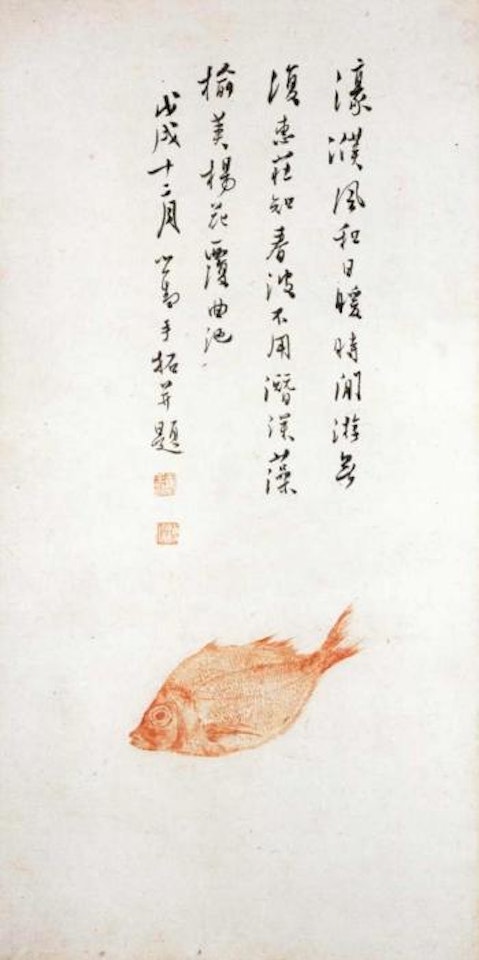 濠濮風和日暖時閒游無
復惠莊知春波不用潛深藻
榆莢楊花覆曲池
戊戌十二月心畬手拓并題